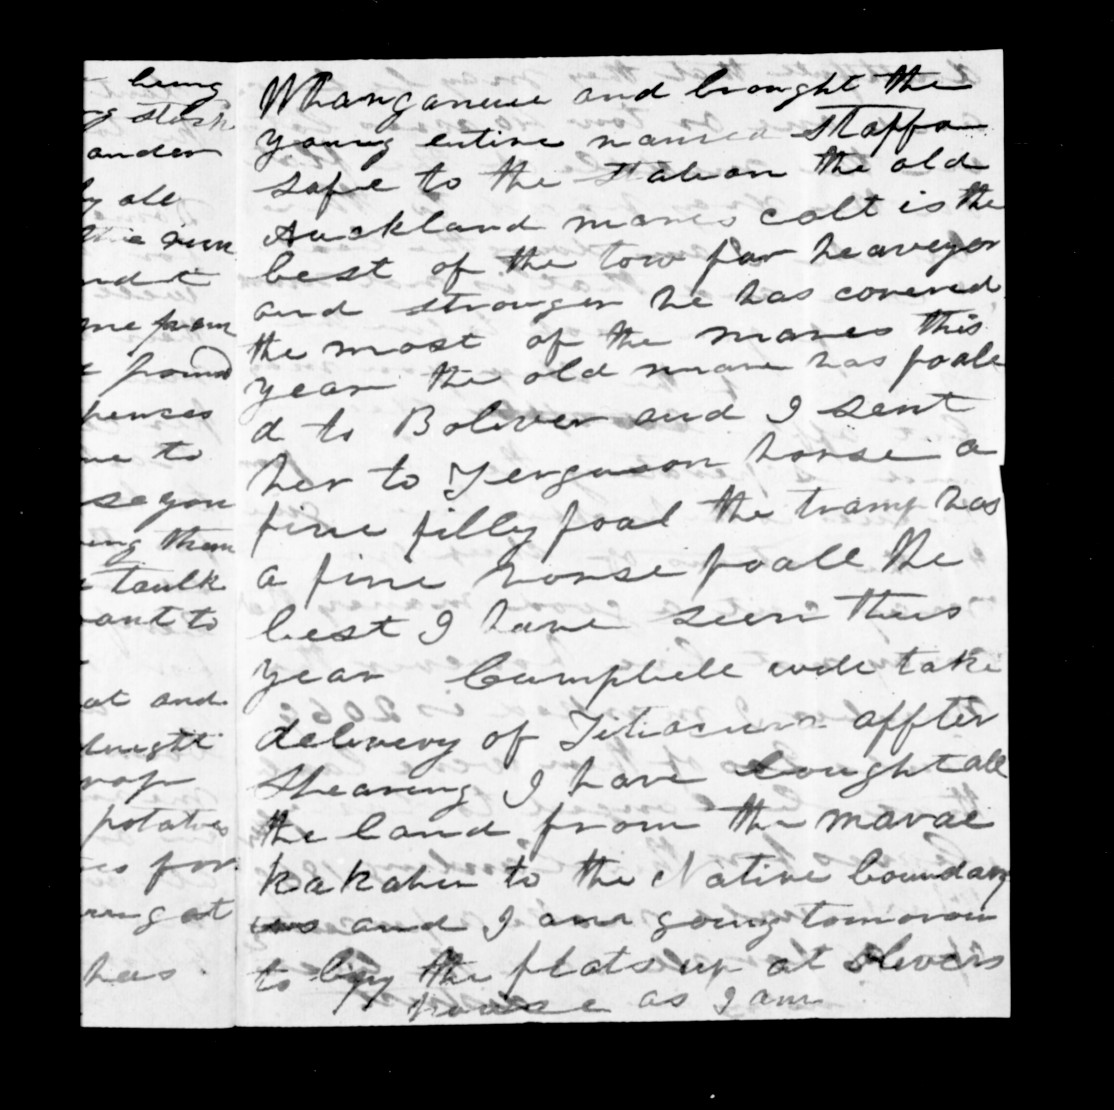 being
stock
ander
by all
the run
me from
pound
penses
me to
se you
ing them
taulk
want to
at and
potatoes
es for
ring at
has
Whanganui and brought the
young entire named Staffa
safe to the Station the old
Auckland mares colt is the
best of the tow far heaveyer
and stronger he has covered
the most of the mares this
year the old mare has foale
d to Boliver and I sent
her to Ferguson horse a
fine filly foal the tramp has
a fine horse foall the
best I have seen theis
year Campbell will take
delivery of affter
Shearing I have bought all
the land from the marae
kakaheu to the Native boundary
and I am going tomorow
to buy the flats up at olivers
house as I am